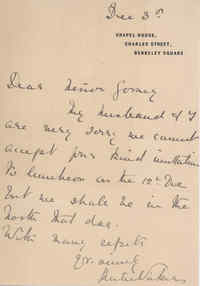 Dec 3rd
CHAPEL HOUSE,
CHARLES STREET,
BERKELEY SQUARE
Dear Señor Gomez
My husband & I
are very sorry we cannot
accept your kind invitation
to luncheon on the 12th Dec
but we shall be in the
north that day.
With many regrets
Yrs